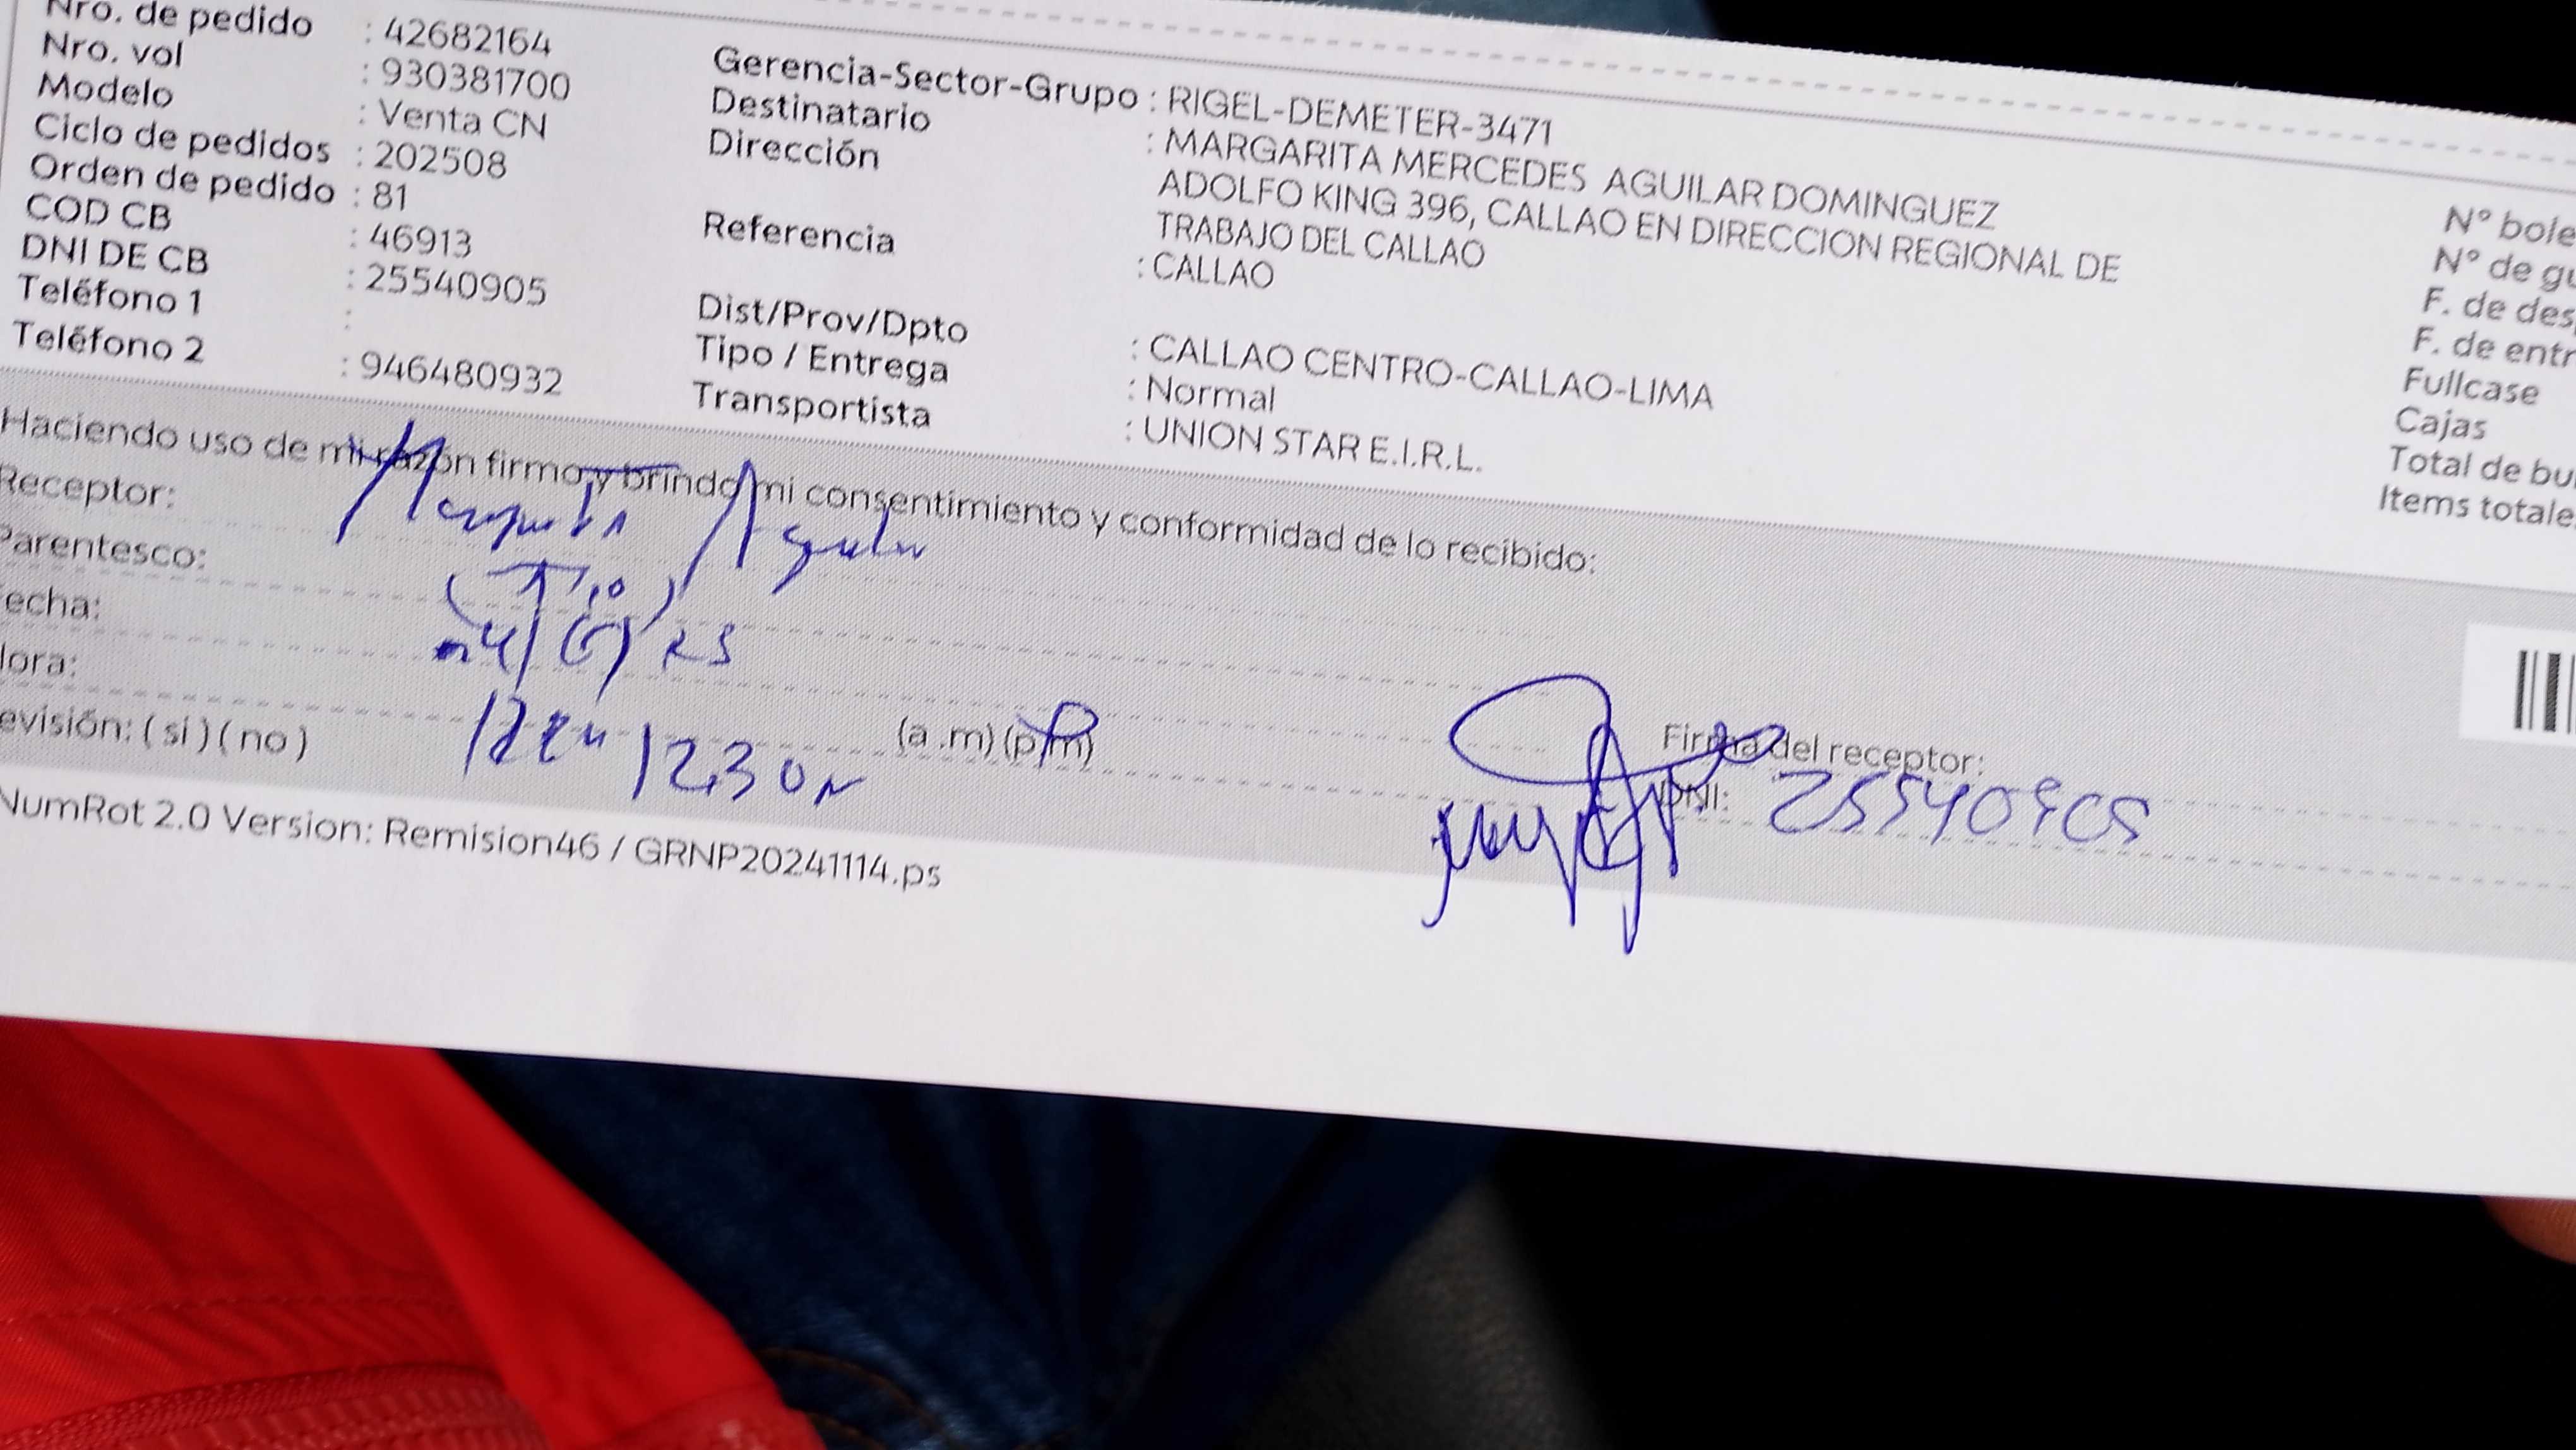 Nro. de pedido : 42682164
Nro. vol : 930381700
Modelo : Venta CN
Ciclo de pedidos : 202508
Orden de pedido : 81
COD CB : 46913
DNI DE CB : 25540905
Teléfono 1 :
Teléfono 2 : 946480932
Gerencia-Sector-Grupo : RIGEL-DEMETER-3471
Destinatario : MARGARITA MERCEDES AGUILAR DOMINGUEZ
Dirección ADOLFO KING 396, CALLAO EN DIRECCION REGIONAL DE
TRABAJO DEL CALLAO
Referencia : CALLAO
Dist/Prov/Dpto : CALLAO CENTRO-CALLAO-LIMA
Tipo / Entrega : Normal
Transportista : UNION STAR E.I.R.L.
N° bole
N° de gu
F. de des
F. de entr
Fullcase
Cajas
Total de bu
Items totale
Haciendo uso de mi razón firmo y brindo mi consentimiento y conformidad de lo recibido:
Receptor: Margarita Aguilar
Parentesco:
echa:
ora: (a .m) (p.m)
evisión: ( si ) ( no ) 1230
Firma del receptor:
DNI: 25540905
NumRot 2.0 Version: Remision46 / GRNP20241114.ps